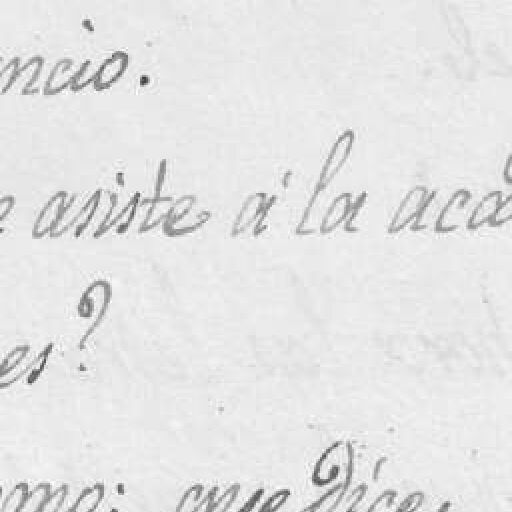 ncio.
e asiste á la aca
es?
omo: que dice